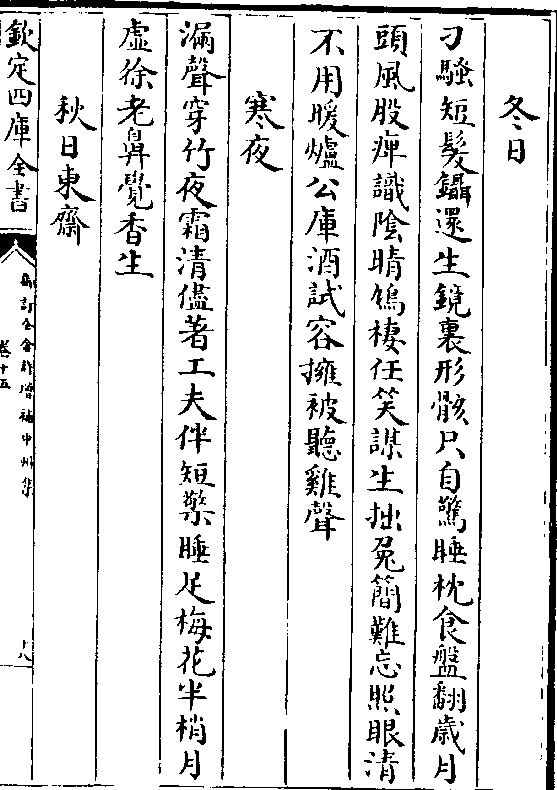 冬日
刁騷短髮鑷還生鏡裏形骸只自驚睡枕食盤翻歲月
頭風股痺識陰晴鳩棲任笑謀生拙兔簡難忘照眼清
不用暖爐公庫酒試容擁被聽雞聲
寒夜
漏聲穿竹夜霜清儘著工夫伴短檠睡足梅花半梢月
虛徐老鼻覺香生
秋日東齋
欽定四庫全書
御訂全金詩增補中州集
卷十五
十八